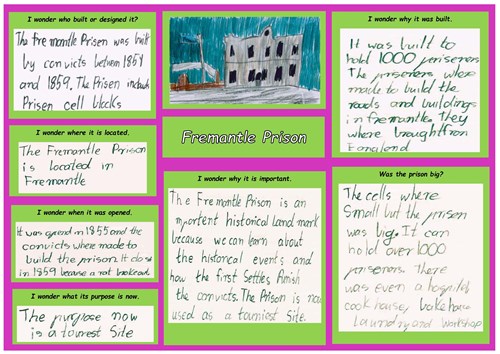 I wonder who built or designed it?
The fremantle Prison was built
by convicts between 1851
and 1859. The Prison include
Prisen cell blocks
I wonder where it is located.
The Fremantle Prison
is located in
Fremantle
I wonder when it was opened.
It was opened in 1855 and the
convicts where made to
build the prison. It
in 1859 because a
I wonder what its purpose is now.
The purpose now
is a tourest Site
Fremantle Prison
I wonder why it is important.
The Fremantle Prison is an
importent historical Land mark
because we can learn about
the historcal events and
how the first Settles,
the convicts. The Prison is now
used as a tourniest Site.
I wonder why it was built.
It was built to
hold 1000 priseners
The prisoners where
made to build the
roads and buildings
in fremantle. They
where brought from
England
Was the prison big?
The cells where
Small but the prison
was big. It can
hold over 1000
prisoners. There
was even a hospital,
cook house, bake house
Laundry and workshop